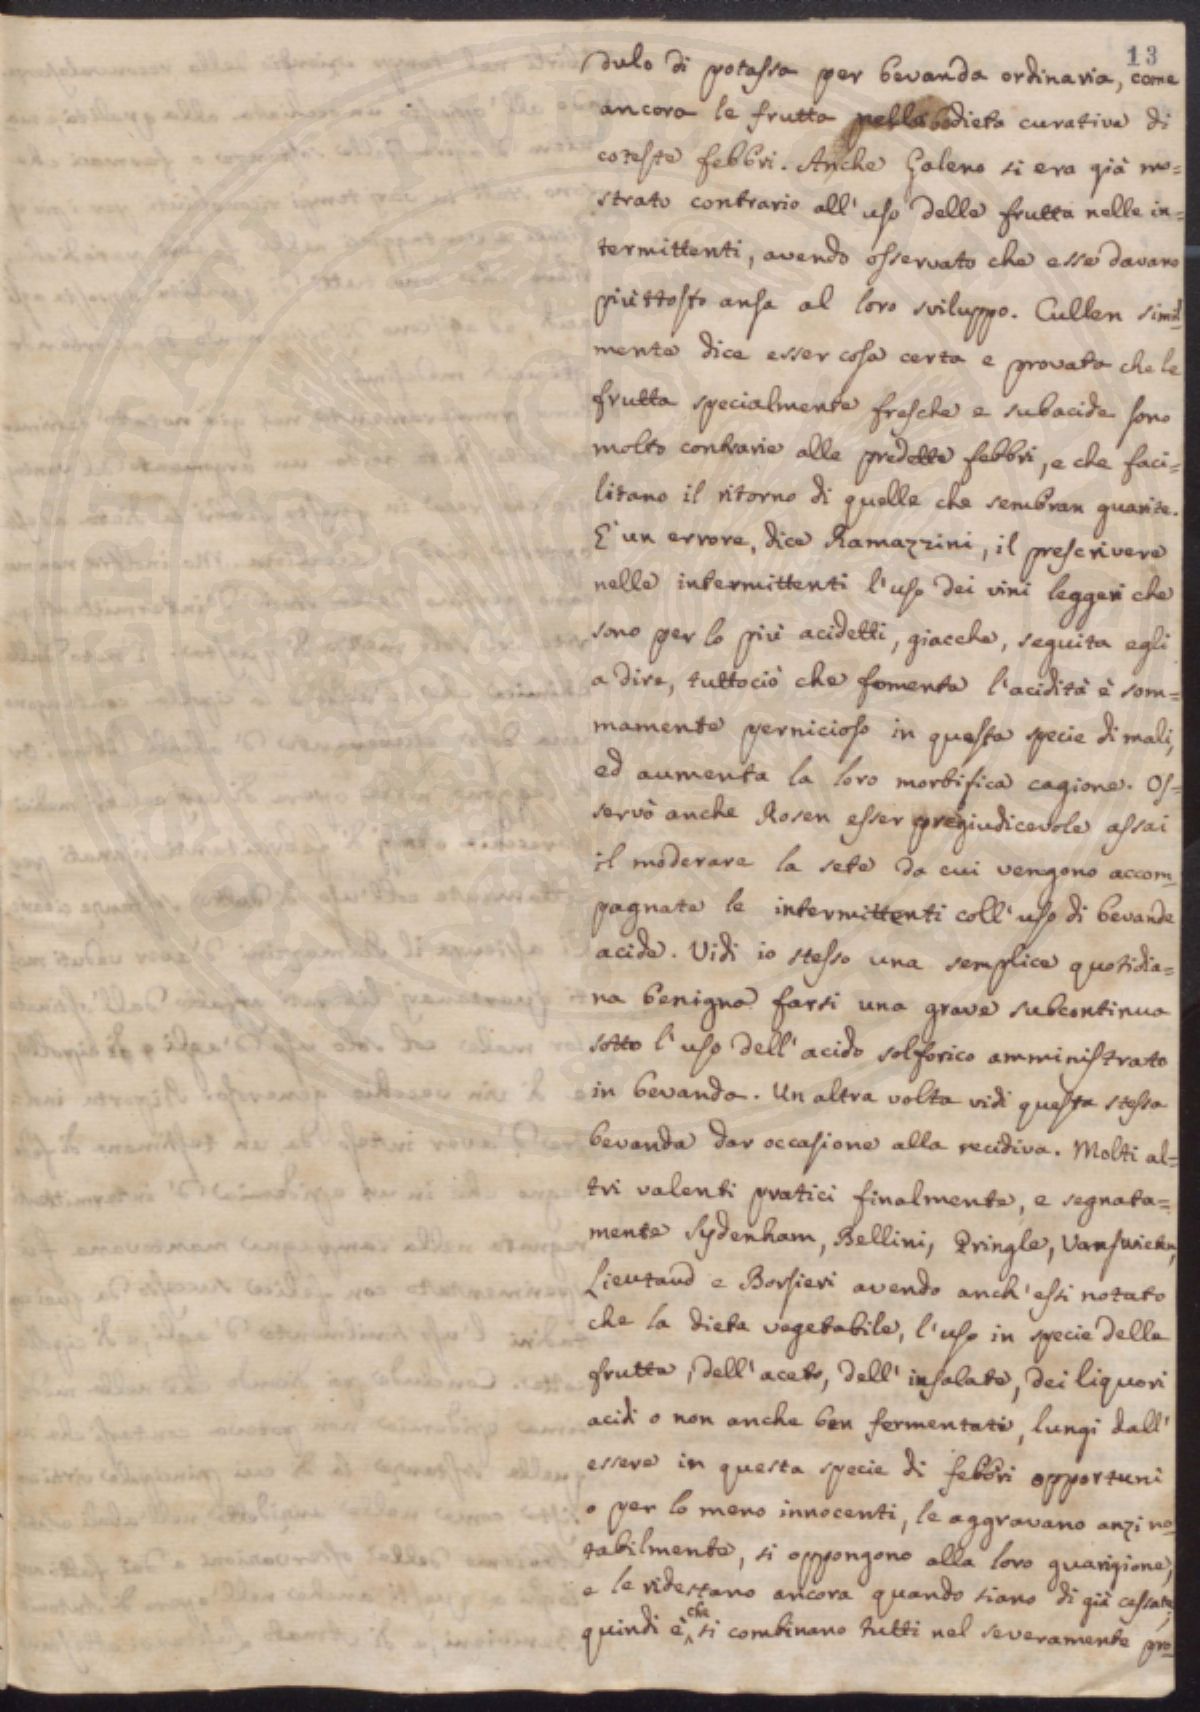 13
dulo di potassa per bevanda ordinaria, come
ancora le frutta nella dieta curativa di
coteste febbri. Anche Galeno si era già mo=
strato contrario all'uso delle frutta nelle in=
termittenti, avendo osservato che esse davano
piuttosto ansa al loro sviluppo. Cullen simil=
mente dice esser cosa certa e provata che le
frutta specialmente fresche e subacide sono
molto contrarie alle predette febbri, e che faci=
litano il ritorno di quelle che sembran guarite.
E' un errore, dice Ramazzini, il prescrivere
nelle intermittenti l'uso dei vini leggeri che
sono per lo più acidetti, giacche, seguita egli
a dire, tuttociò che fomenta l'acidità è som=
mamente pernicioso in questa specie di mali,
ed aumenta la loro morbifica cagione. Os=
servò anche Rosen esser pregiudicevole assai
il moderare la sete da cui vengono accom=
pagnate le intermittenti coll'uso di bevande
acide. Vidi io stesso una semplice quotidia=
na benigna farsi una grave subcontinua
sotto l'uso dell'acido solforico amministrato
in bevanda. Un altra volta vidi questa stessa
bevanda dar occasione alla recidiva. Molti al=
tri valenti pratici finalmente, e segnata=
mente Sydenham, Bellini, Pringle, Vanswieten,
Lieutaud e Borsieri avendo anch'essi notato
che la dieta vegetabile, l'uso in specie delle
frutta, dell'aceto, dell'insalate, dei liquori
acidi o non anche ben fermentati, lungi dall'
essere in questa specie di febbri opportuni
o per lo meno innocenti, le aggravano anzi no=
tabilmente, si oppongono alla loro guarigione,
e le ridestano ancora quando siano di già cessate,
quindi è che si combinano tutti nel severamente pro=